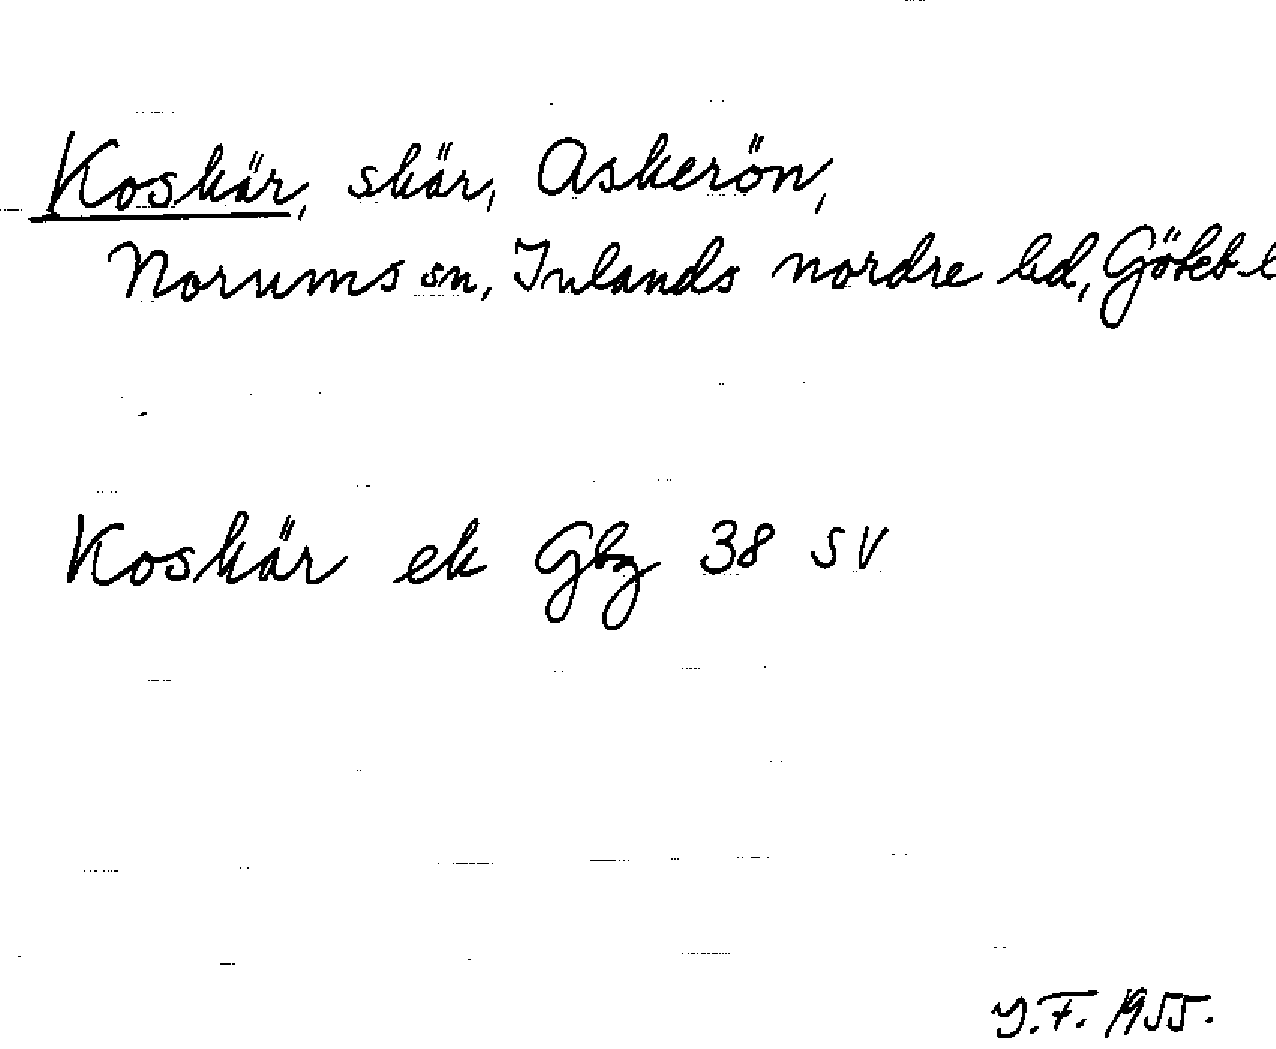 Koskär, skär, Askerön,
Norums sn, Inlands nordre hd, Götebl
Koskär ek Gbg 38 SV
Y.F. 1955.